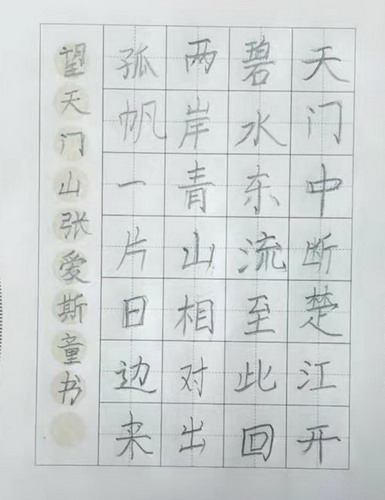 天门中断楚江开
碧水东流至此回
两岸青山相对出
孤帆一片日边来
望天门山张爱斯童书